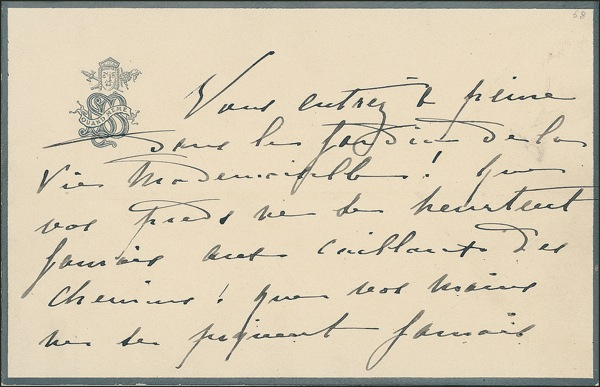 58
QUAND MÊME
Vous entrez à peine
dans les jardins de la
Vie Mademoiselle ! que
vos pieds ne se heurtent
jamais aux cailloux des
chemins ! que vos mains
ne se piquent jamais